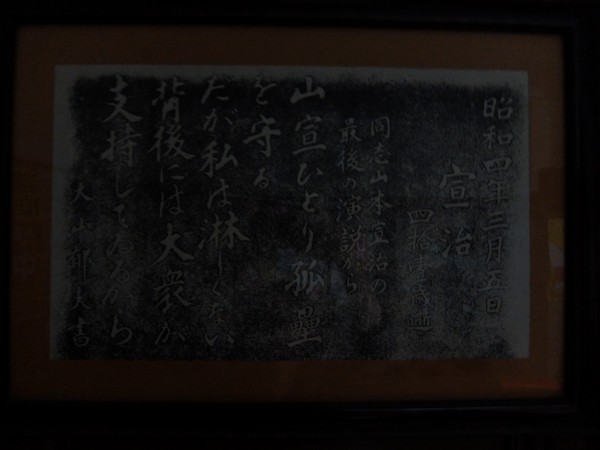 昭和四年三月五日
宣治
四拾壱歳
同志山本宣治の
最後の演説から
山宣ひとり孤塁
を守る
だが私は淋しくない
背後には大衆が
支持してゐるから
大山郁夫書